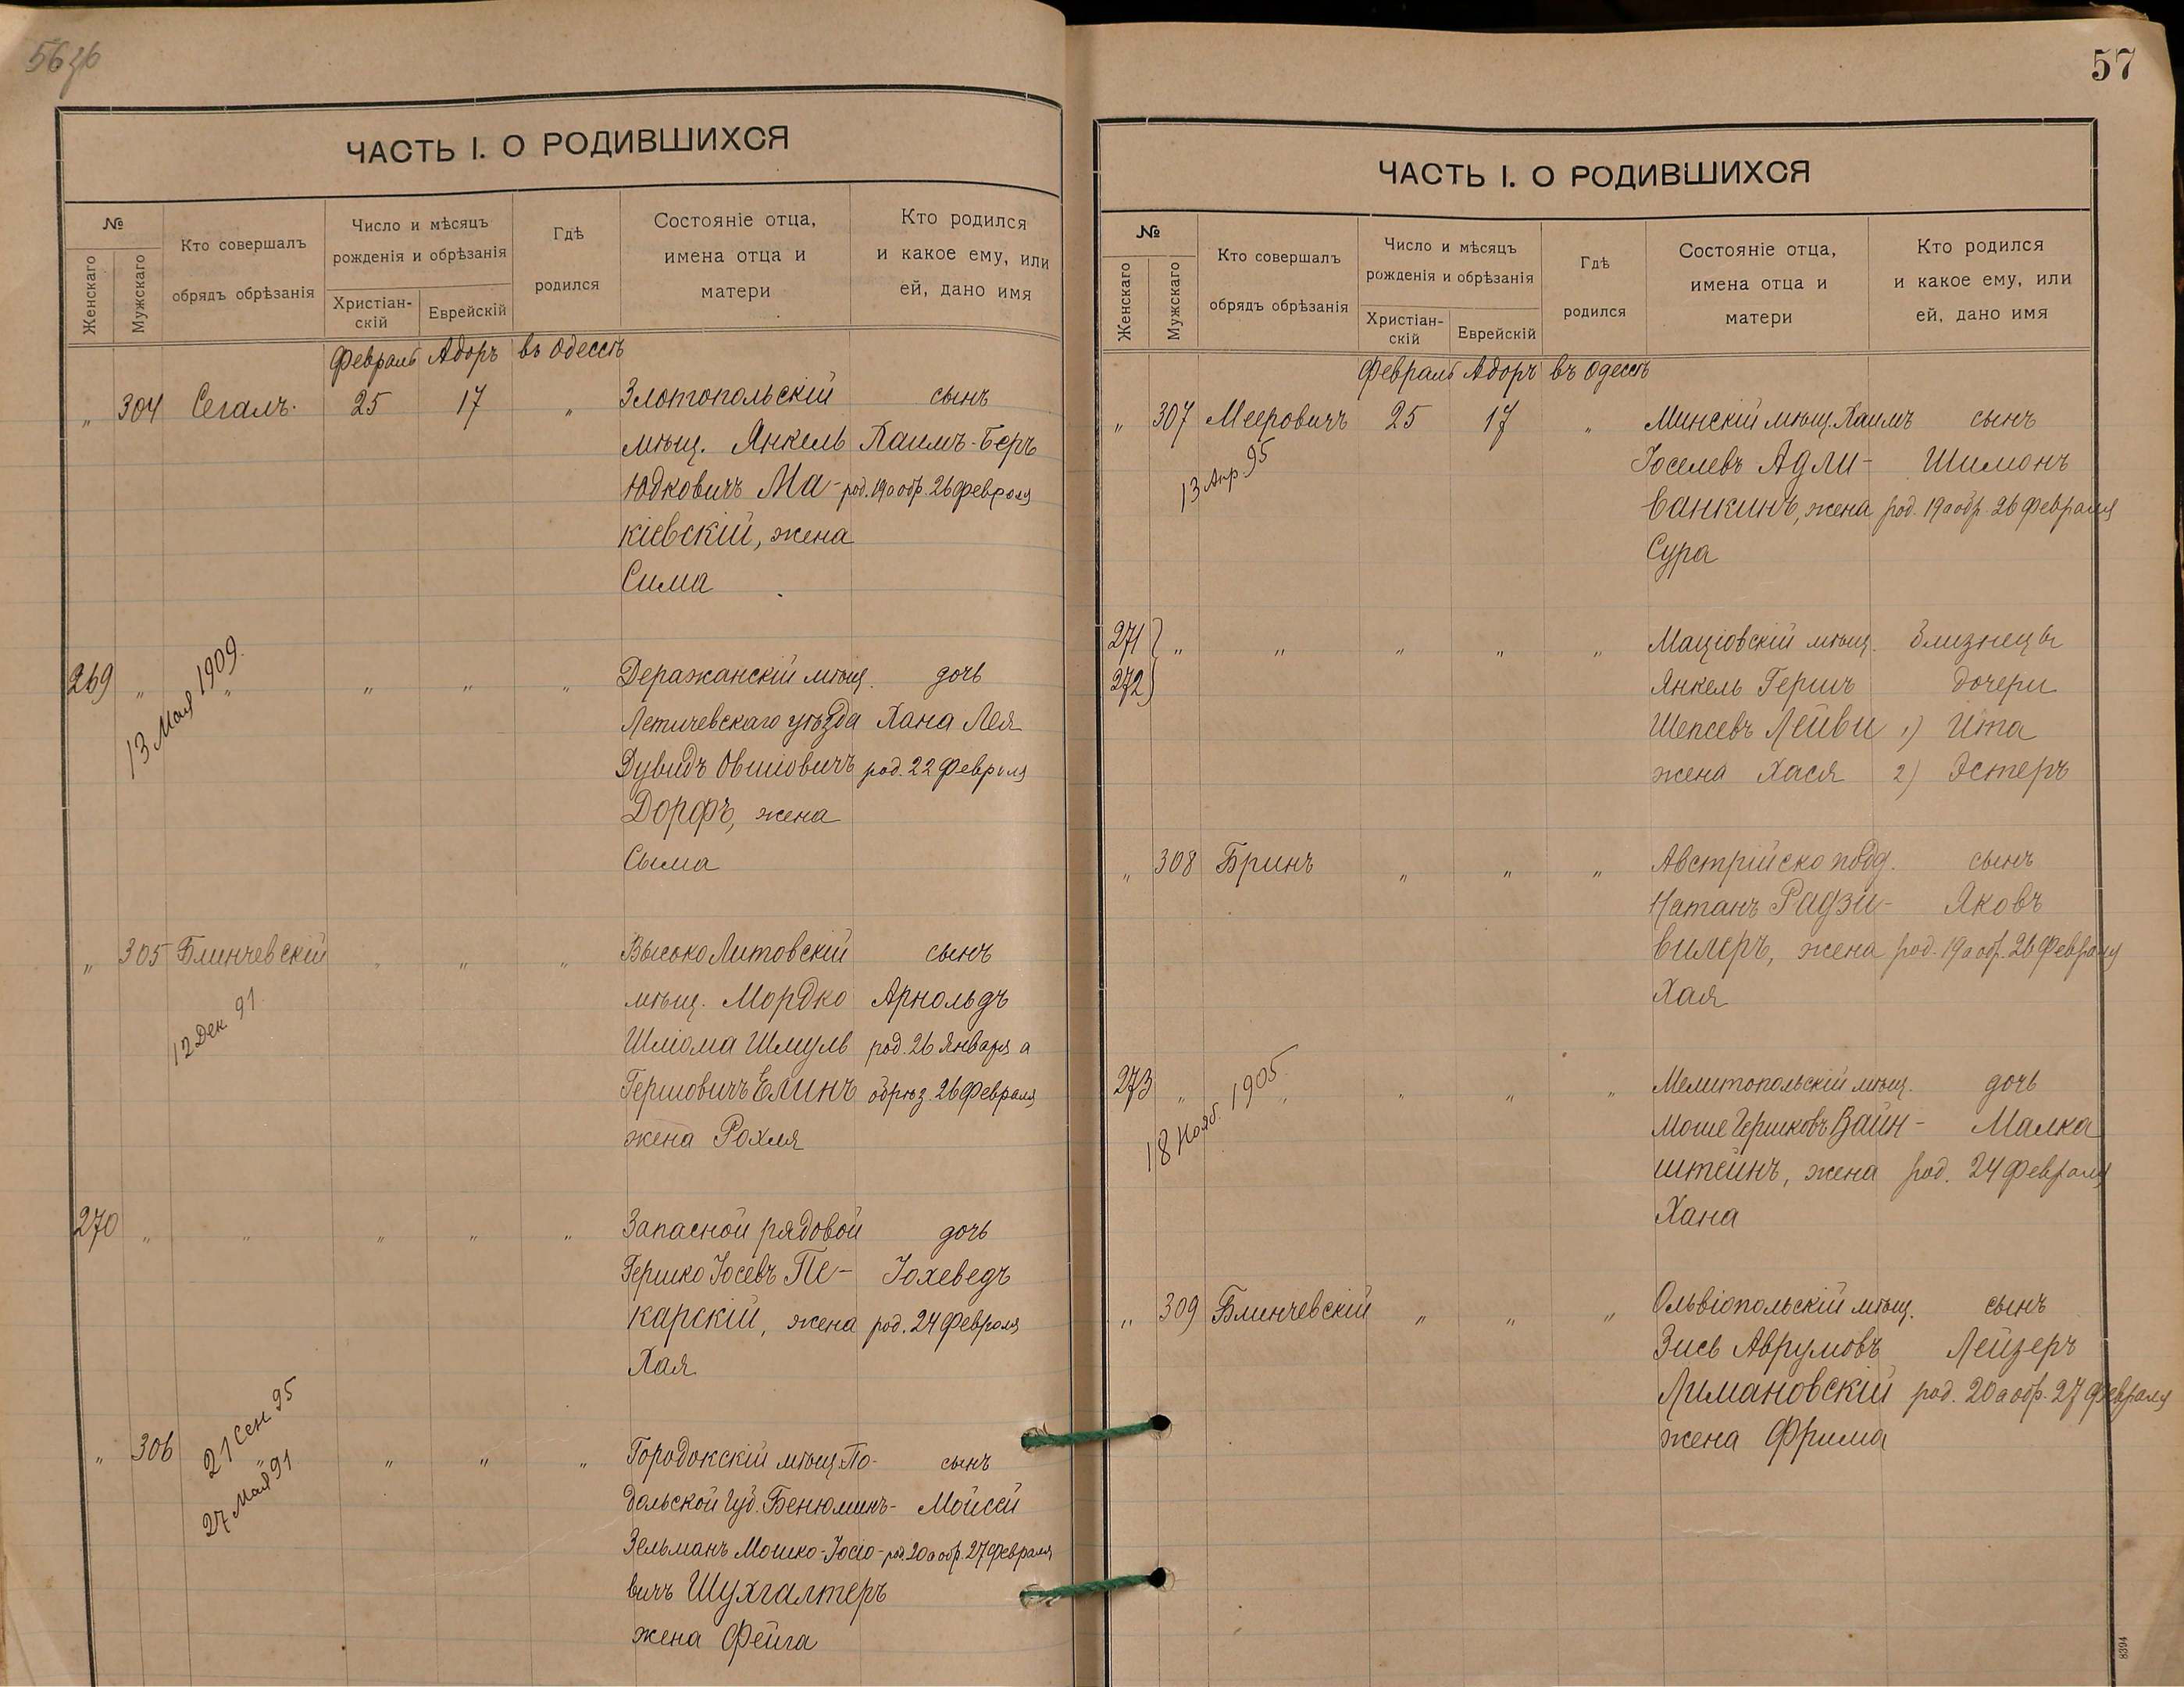 56 зб
ЧАСТЬ I. О РОДИВШИХСЯ
№
Женскаго
Мужскаго
Кто совершалъ
обрядъ обрѣзанія
Число и мѣсяцъ
рожденія и обрѣзанія
Христіан-
скій
Еврейскій
Гдѣ
родился
Состояніе отца,
имена отца и
матери
Кто родился
и какое ему, или
ей, дано имя
Февраль Адоръ въ Одессѣ
„ 304 Сегалъ. 25 17 „ Златопольскій сынъ
мѣщ. Янкель Хаимъ-Беръ
Юдковичъ Ма- род. 19 а обр. 26 февраля
кіевскій, жена
Сима
269 „ „ „ „ „ Деражанскій мѣщ. дочь
13 Мая 1909.
Летичевскаго уѣзда Хана Лея
Дувидъ Овшіовичъ род. 22 февраля
Дорфъ, жена
Сыма
„ 305 Блинчевскій „ „ „ Высоко Литовскій сынъ
12 Дек. 91
мѣщ. Мордко Арнольдъ
Шліома Шмуль род. 26 Января а
Гершовичъ Елинъ обрѣз. 26 февраля
жена Рохля
270 „ „ „ „ „ Запасной рядовой дочь
Гершко Іосевъ Пе- Іохеведъ
карскій, жена род. 24 февраля
Хая
„ 306 „ „ „ „ Городокскій мѣщ. По- сынъ
21 Сен. 95
27 Мая 91
дольской Губ. Бенюминъ- Мойсей
Зельманъ Мошко-Іосіо- род. 20 а обр. 27 февраля
вичъ Шухгалтеръ
жена Фейга
57
ЧАСТЬ I. О РОДИВШИХСЯ
№
Женскаго
Мужскаго
Кто совершалъ
обрядъ обрѣзанія
Число и мѣсяцъ
рожденія и обрѣзанія
Христіан-
скій
Еврейскій
Гдѣ
родился
Состояніе отца,
имена отца и
матери
Кто родился
и какое ему, или
ей, дано имя
Февраль Адоръ въ Одессѣ
„ 307 Мееровичъ 25 17 „ Минскій мѣщ. Хаимъ сынъ
13 Апр. 95
Іоселевъ Адли- Шимонъ
ванкинъ, жена род. 19 а обр. 26 февраля
Сура
271 „ „ „ „ „ Маціовскій мѣщ. близнецы
272 Янкель Гершъ дочери
Шепсевъ Лейви 1) Ита
жена Хася 2) Эстеръ
„ 308 Бринъ „ „ „ Австрійско подд. сынъ
Натанъ Радзи- Яковъ
вилеръ, жена род. 19 а обр. 26 февраля
Хая
273 „ „ „ „ „ Мелитопольскій мѣщ. дочь
18 Нояб. 1905.
Моше Гершковъ Вайн- Малка
штейнъ, жена род. 24 февраля
Хана
„ 309 Блинчевскій „ „ „ Ольвіопольскій мѣщ. сынъ
Зись Аврумовъ Лейзеръ
Лимановскій род. 20 а обр. 27 февраля
жена Фрима
8394